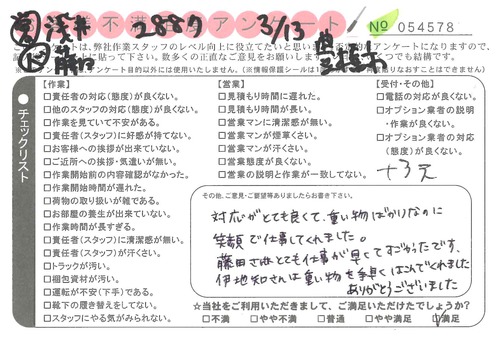 浅井 2887 3/13
お客様不満足度アンケート
No 054578
チェックリスト
【作業】
□責任者の対応(態度)が良くない。
□他のスタッフの対応(態度)が良くない。
□作業を見ていて不安がある。
□責任者(スタッフ)に好感が持てない。
□お客様への挨拶が出来ていない。
□ご近所への挨拶・気遣いが無い。
□作業開始前の内容確認がなかった。
□作業開始時間が遅れた。
□荷物の取り扱いが雑である。
□お部屋の養生が出来ていない。
□作業時間が長すぎる。
□責任者(スタッフ)に清潔感が無い。
□責任者(スタッフ)が汗くさい。
□トラックが汚い。
□梱包資材が汚い。
□運転が不安(下手)である。
□靴下の履き替えをしてない。
□スタッフにやる気がみられない。
【営業】
□見積もり時間に遅れた。
□見積もり時間が長い。
□営業マンに清潔感が無い。
□営業マンが煙草くさい。
□営業マンが汗くさい。
□営業態度が良くない。
□営業の説明と作業が一致してない。
【受付・その他】
□電話の対応が良くない。
□オプション業者の説明・作業が良くない。
□オプション業者の対応(態度)が良くない。
その他、ご意見・ご要望等ありましたらお書き下さい。
対応がとても良くて、重い物ばかりなのに
笑顔で仕事してくれました。
藤田さんはとても仕事が早くてすごかったです。
伊地知さんは重い物を手早くはこんでくれました
ありがとうございました
☆当社をご利用いただきまして、ご満足いただけたでしょうか?
□不満 □やや不満 □普通 □やや満足 □満足